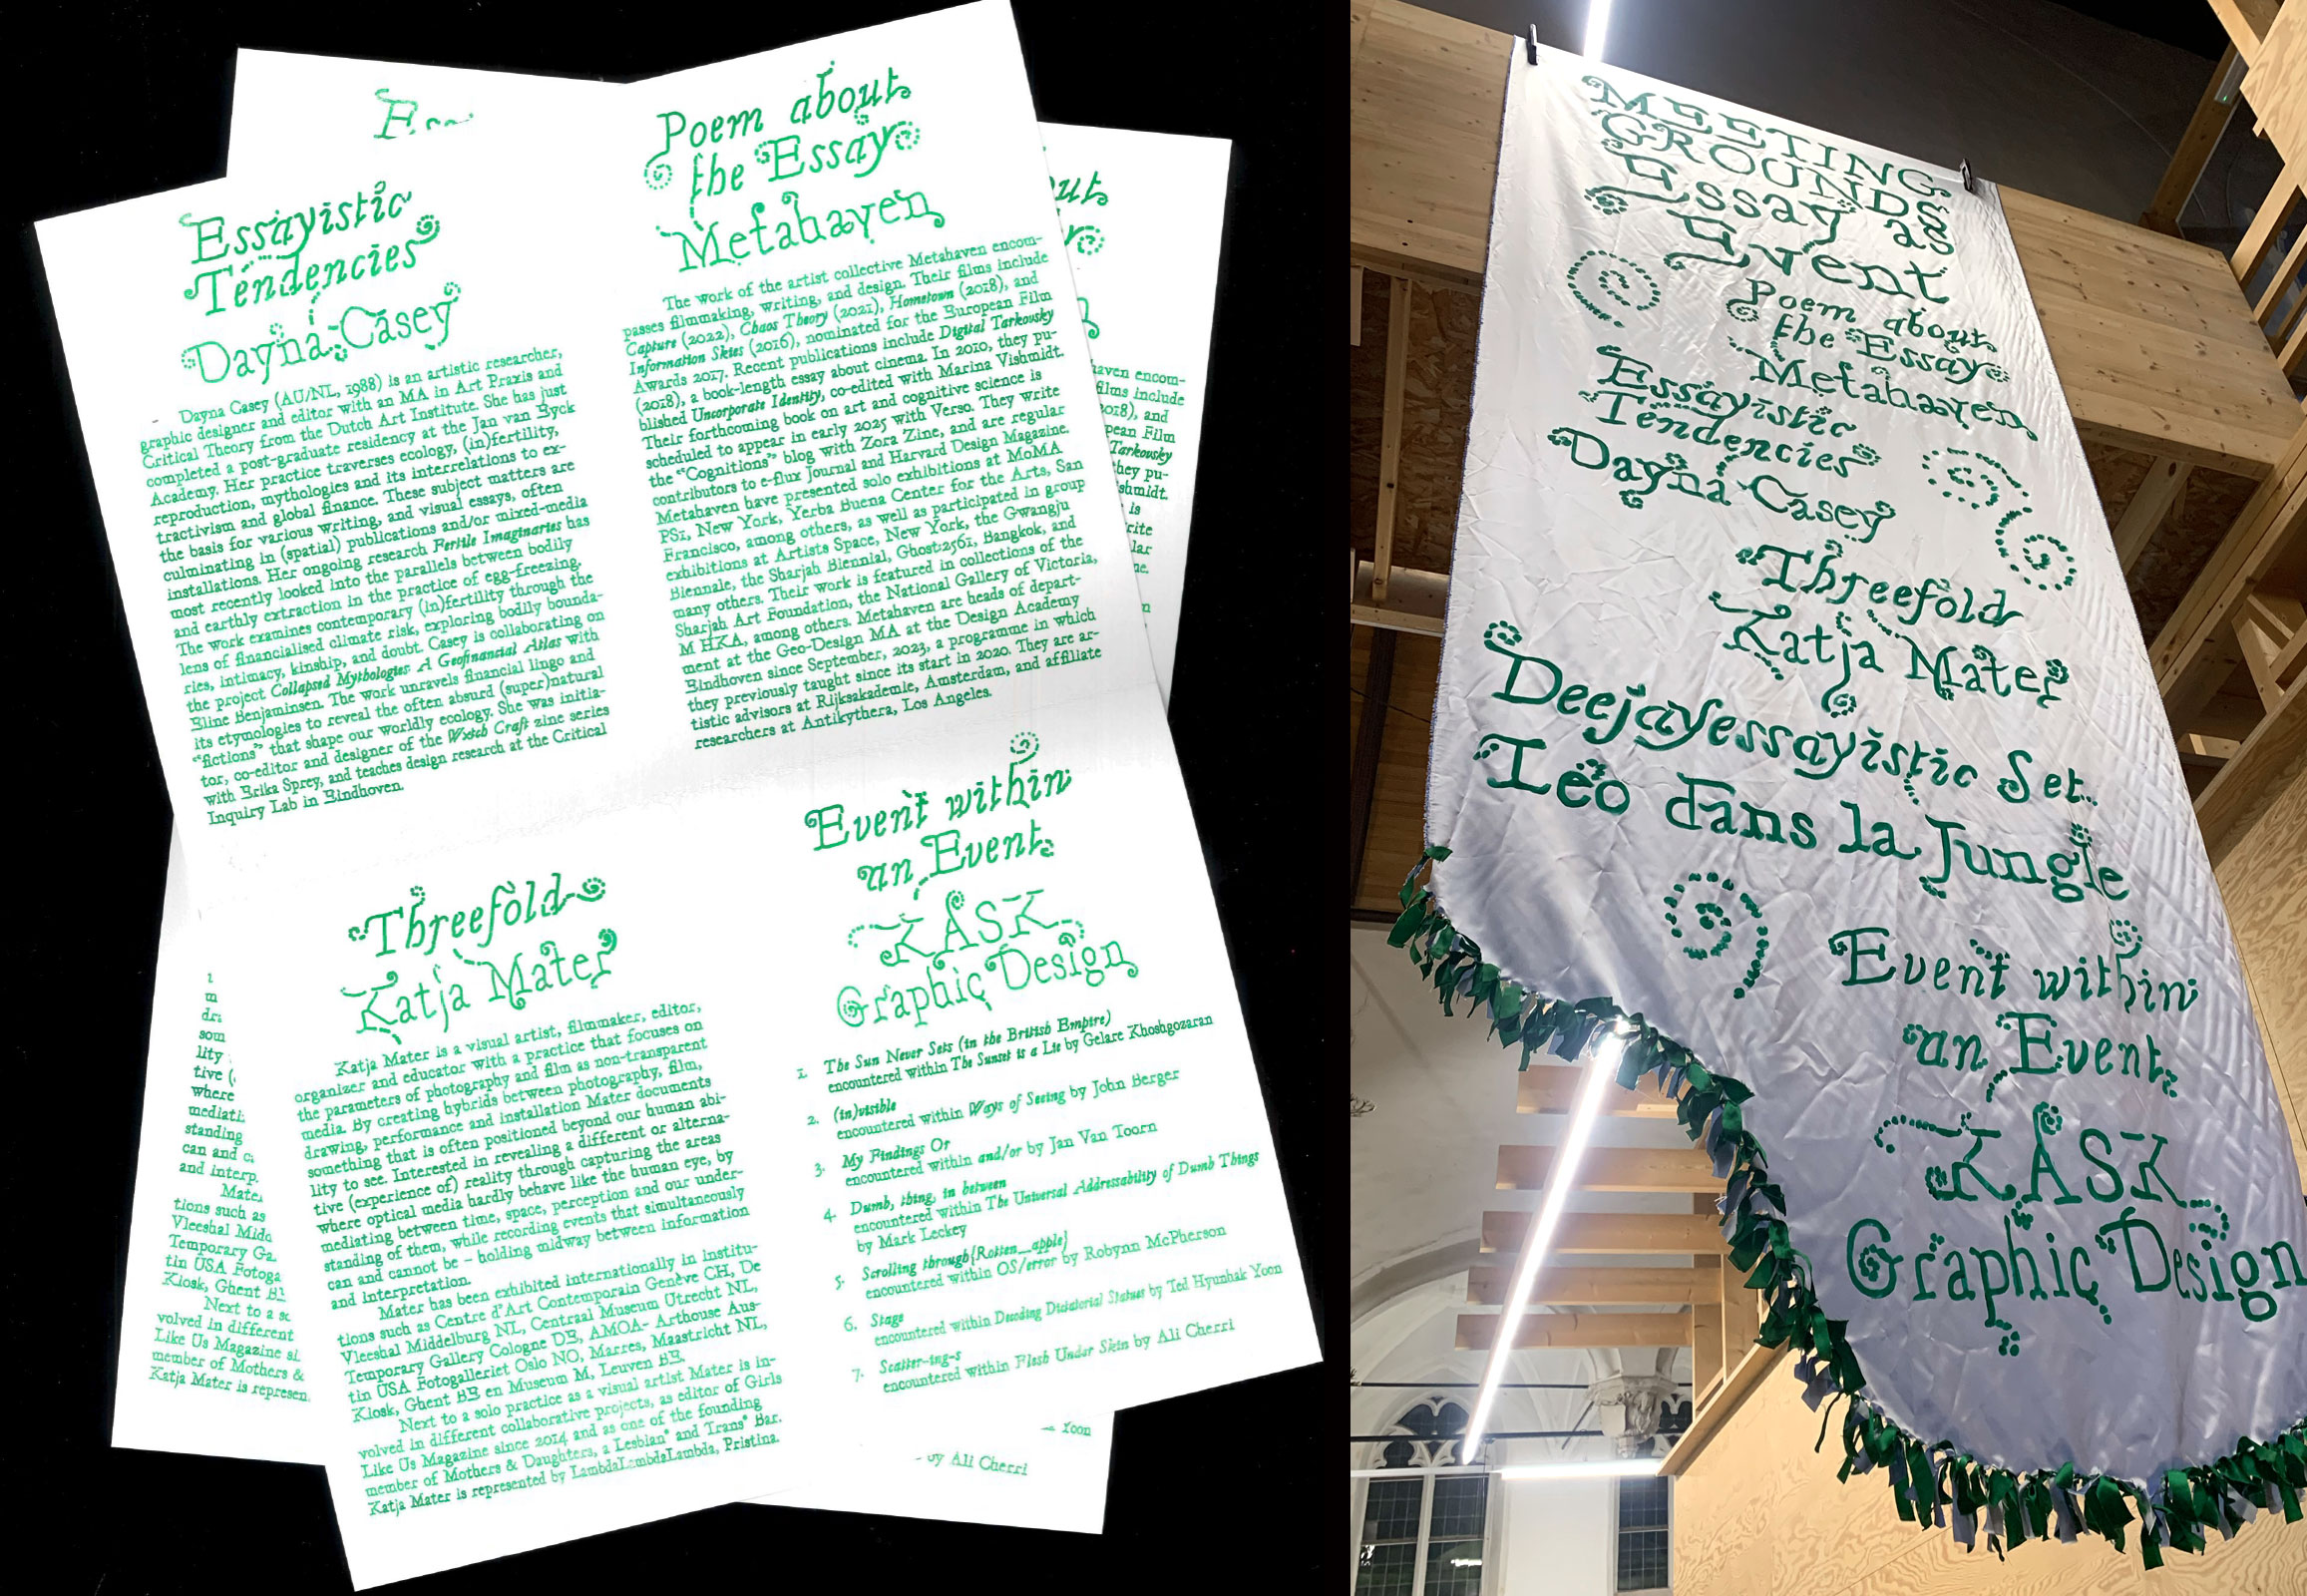 E
Essayistic
Tendencies
Dayna Casey
Dayna Casey (AU/NL, 1988) is an artistic researcher,
graphic designer and editor with an MA in Art Praxis and
Critical Theory from the Dutch Art Institute. She has just
completed a post-graduate residency at the Jan van Eyck
Academy. Her practice traverses ecology, (in)fertility,
reproduction, mythologies and its interrelations to ex-
tractivism and global finance. These subject matters are
the basis for various writing, and visual essays, often
culminating in (spatial) publications and/or mixed-media
installations. Her ongoing research Fertile Imaginaries has
most recently looked into the parallels between bodily
and earthly extraction in the practice of egg-freezing.
The work examines contemporary (in)fertility through the
lens of financialised climate risk, exploring bodily bounda-
ries, intimacy, kinship, and doubt. Casey is collaborating on
the project Collapsed Mythologies: A Geofinancial Atlas with
Eline Benjaminsen. The work unravels financial lingo and
its etymologies to reveal the often absurd (super)natural
“fictions” that shape our worldly ecology. She was initia-
tor, co-editor and designer of the Wxtch Craft zine series
with Erika Sprey, and teaches design research at the Critical
Inquiry Lab in Eindhoven.
Poem about
the Essay
Metahaven
The work of the artist collective Metahaven encom-
passes filmmaking, writing, and design. Their films include
Capture (2022), Chaos Theory (2021), Hometown (2018), and
Information Skies (2016), nominated for the European Film
Awards 2017. Recent publications include Digital Tarkovsky
(2018), a book-length essay about cinema. In 2010, they pu-
blished Uncorporate Identity, co-edited with Marina Vishmidt.
Their forthcoming book on art and cognitive science is
scheduled to appear in early 2025 with Verso. They write
the “Cognitions” blog with Zora Zine, and are regular
contributors to e-flux Journal and Harvard Design Magazine.
Metahaven have presented solo exhibitions at MoMA
PS1, New York, Yerba Buena Center for the Arts, San
Francisco, among others, as well as participated in group
exhibitions at Artists Space, New York, the Gwangju
Biennale, the Sharjah Biennial, Ghost:2561, Bangkok, and
many others. Their work is featured in collections of the
Sharjah Art Foundation, the National Gallery of Victoria,
M HKA, among others. Metahaven are heads of depart-
ment at the Geo-Design MA at the Design Academy
Eindhoven since September, 2023, a programme in which
they previously taught since its start in 2020. They are ar-
tistic advisors at Rijksakademie, Amsterdam, and affiliate
researchers at Antikythera, Los Angeles.
Threefold
Katja Mater
Katja Mater is a visual artist, filmmaker, editor,
organizer and educator with a practice that focuses on
the parameters of photography and film as non-transparent
media. By creating hybrids between photography, film,
drawing, performance and installation Mater documents
something that is often positioned beyond our human abi-
lity to see. Interested in revealing a different or alterna-
tive (experience of) reality through capturing the areas
where optical media hardly behave like the human eye, by
mediating between time, space, perception and our under-
standing of them, while recording events that simultaneously
can and cannot be – holding midway between information
and interpretation.
Mater has been exhibited internationally in institu-
tions such as Centre d’Art Contemporain Genève CH, De
Vleeshal Middelburg NL, Centraal Museum Utrecht NL,
Temporary Gallery Cologne DE, AMOA- Arthouse Aus-
tin USA Fotogalleriet Oslo NO, Marres, Maastricht NL,
Kiosk, Ghent BE en Museum M, Leuven BE.
Next to a solo practice as a visual artist Mater is in-
volved in different collaborative projects, as editor of Girls
Like Us Magazine since 2014 and as one of the founding
member of Mothers & Daughters, a Lesbian* and Trans* Bar.
Katja Mater is represented by LambdaLambdaLambda, Pristina.
Event within
an Event
KASK
Graphic Design
1. The Sun Never Sets (in the British Empire)
encountered within The Sunset is a Lie by Gelare Khoshgozaran
2. (in)visible
encountered within Ways of Seeing by John Berger
3. My Findings Or
encountered within and/or by Jan Van Toorn
4. Dumb, thing, in between
encountered within The Universal Addressability of Dumb Things
by Mark Leckey
5. Scrolling through{Rotten_apple}
encountered within OS/error by Robynn McPherson
6. Stage
encountered within Decoding Dictatorial Statues by Ted Hyunhak Yoon
7. Scatter-ing-s
encountered within Flesh Under Skin by Ali Cherri
out
aven encom-
films include
2018), and
pean Film
Tarkovsky
they pu-
shmidt.
is
rite
lar
ne.
n
som
lity
tive (
where
mediati
standing
can and c
and interp.
Mate
tions such as
Vleeshal Midd
Temporary Ga
tin USA Fotoga
Kiosk, Ghent B
Next to a so
volved in different
Like Us Magazine si
member of Mothers &
Katja Mater is represen
Yoon
by Ali Cherri
MEETING
GROUNDS
Essay as
Event
Poem about
the Essay
Metahaven
Essayistic
Tendencies
Dayna Casey
Threefold
Katja Mater
Deejayessayistic Set
Leo dans la Jungle
Event within
an Event
KASK
Graphic Design